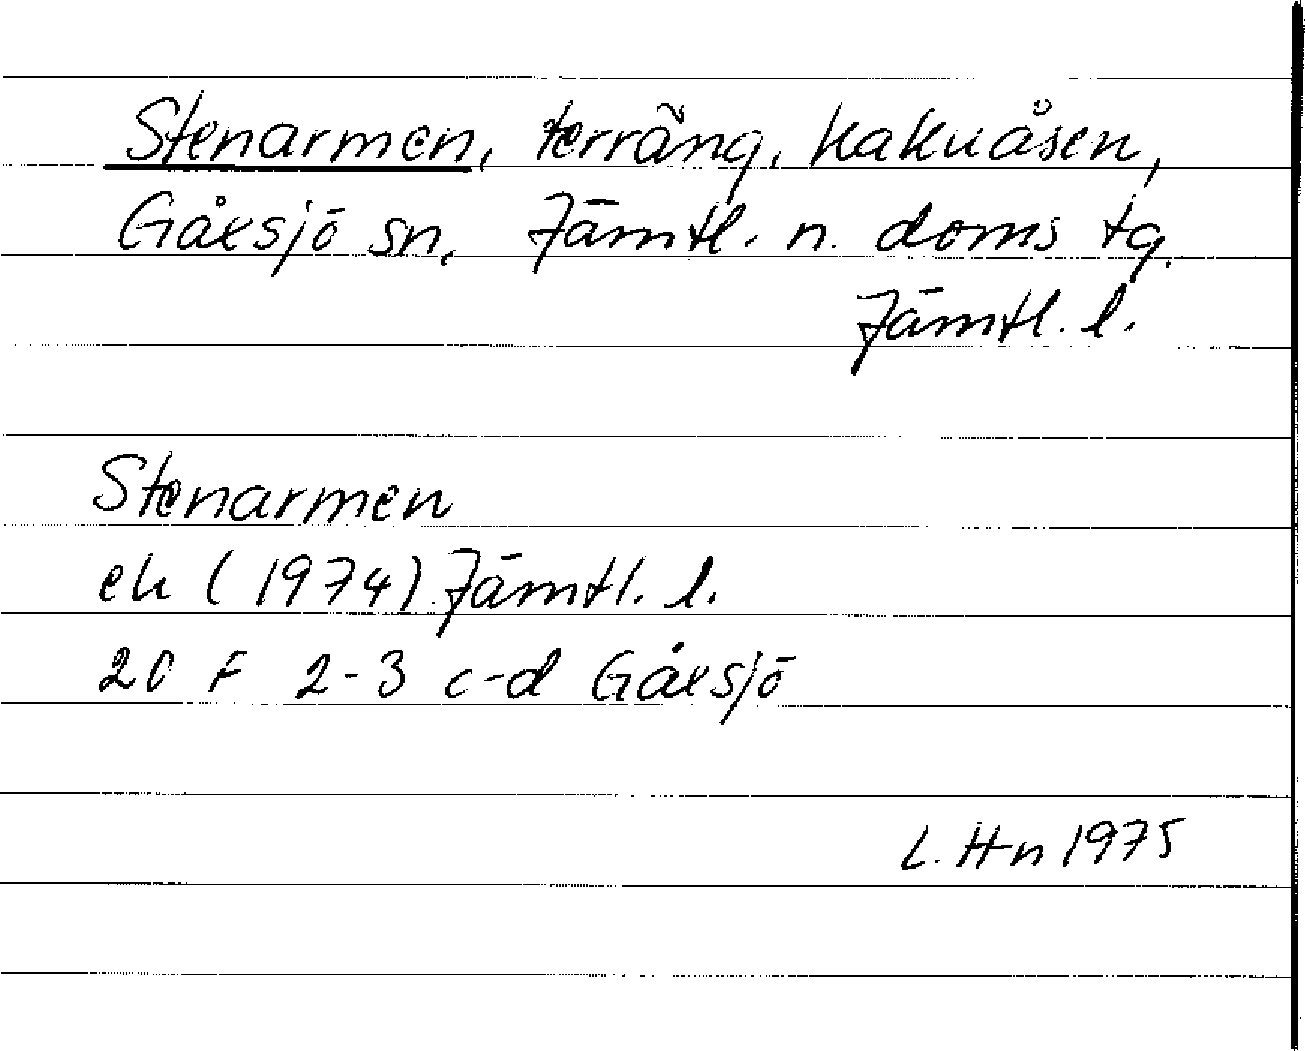 Stenarmen, terräng, Kakuåsen,
Gåxsjö sn, Jämtl. n. doms tg.
Jämtl. l.
Stenarmen
ek (1974) Jämtl. l.
20 F 2-3 c-d Gåxsjö
L. Hn 1975